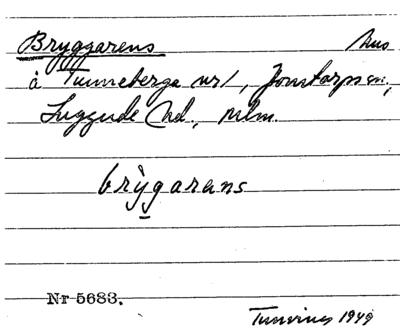 Bryggarens hus
å Tunneberga nr 1, Jonstorps sn,
Luggude hd, Mlm.
brỳgarens
Nr 5683.
Tuneus 1949